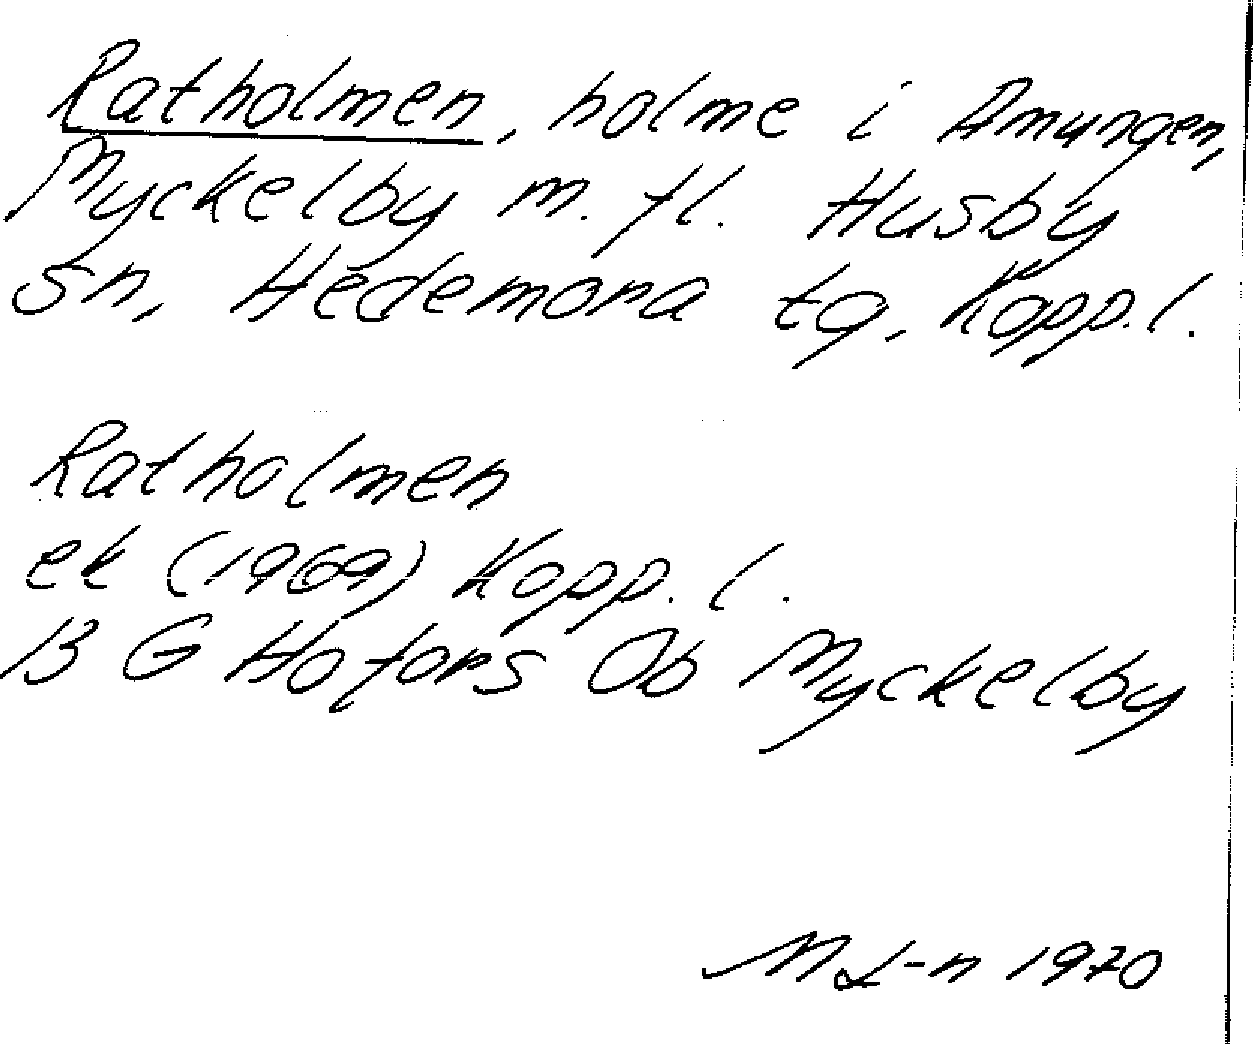 Ratholmen, holme i Amungen,
Myckelby m. fl. Husby
sn, Hedemora tg, Kopp. l.
Ratholmen
ek (1969) Kopp. l.
13 G Hofors 0b Myckelby
M L-n 1970